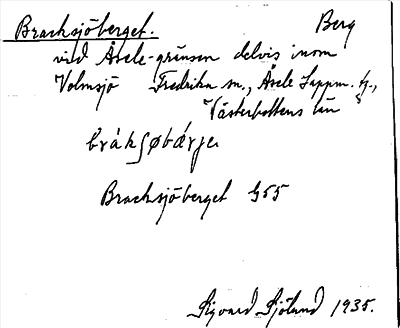 Bracksjöberget. Berg
vid Åsele-gränsen delvis inom
Volmsjö Fredrika sn., Åsele Lappm. tg.,
Västerbottens län
bråkʃøbärjə
Bracksjöberget G55
Sigvard Sjölund 1935.